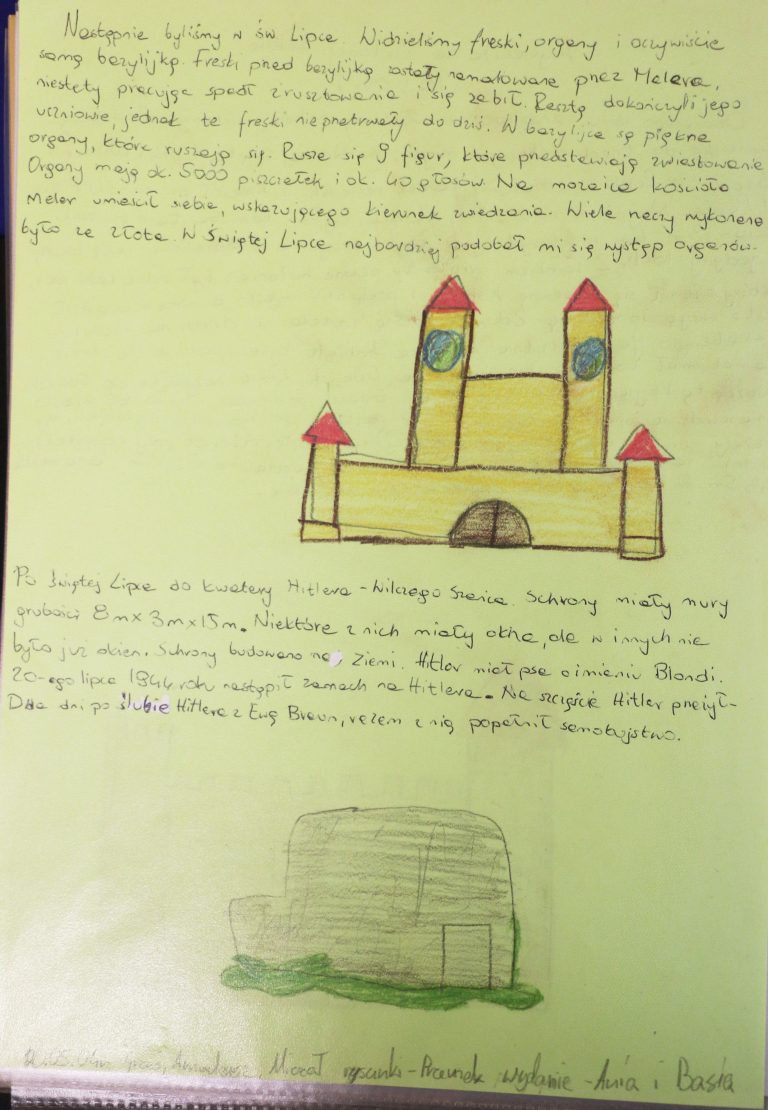 Następnie byliśmy w św Lipce. Widzieliśmy freski, organy i oczywiście
samą bazylijkę. Freski przed bazylijką zostały namalowane przez Melera,
niestety pracując spadł z rusztowania i się zabił. Resztę dokończyli jego
uczniowie, jednak te freski nie przetrwały do dziś. W bazylijce są piękne
organy, które ruszają się. Rusza się 9 figur, które przedstawiają zwiastowanie
Organy mają ok. 5000 piszczałek i ok. 40 głosów. Na mozaice kościoła
Meler umieścił siebie, wskazującego kierunek zwiedzania. Wiele rzeczy wykonane
było ze złota. W Świętej Lipce najbardziej podobał mi się występ organów.
Po Świętej Lipce do kwatery Hitlera - Wilczego Szańca. Schrony miały mury
grubości 8m x 3m x 15m. Niektóre z nich miały okna, ale w innych nie
było już okien. Schrony budowano na ziemi. Hitler miał psa o imieniu Blondi.
20-ego lipca 1944 roku nastąpił zamach na Hitlera. Na szczęście Hitler przeżył.
Dwa dni po ślubie Hitlera z Ewą Braun, razem z nią popełnił samobójstwo.
Michał rysunki - wydanie - Ania i Basia